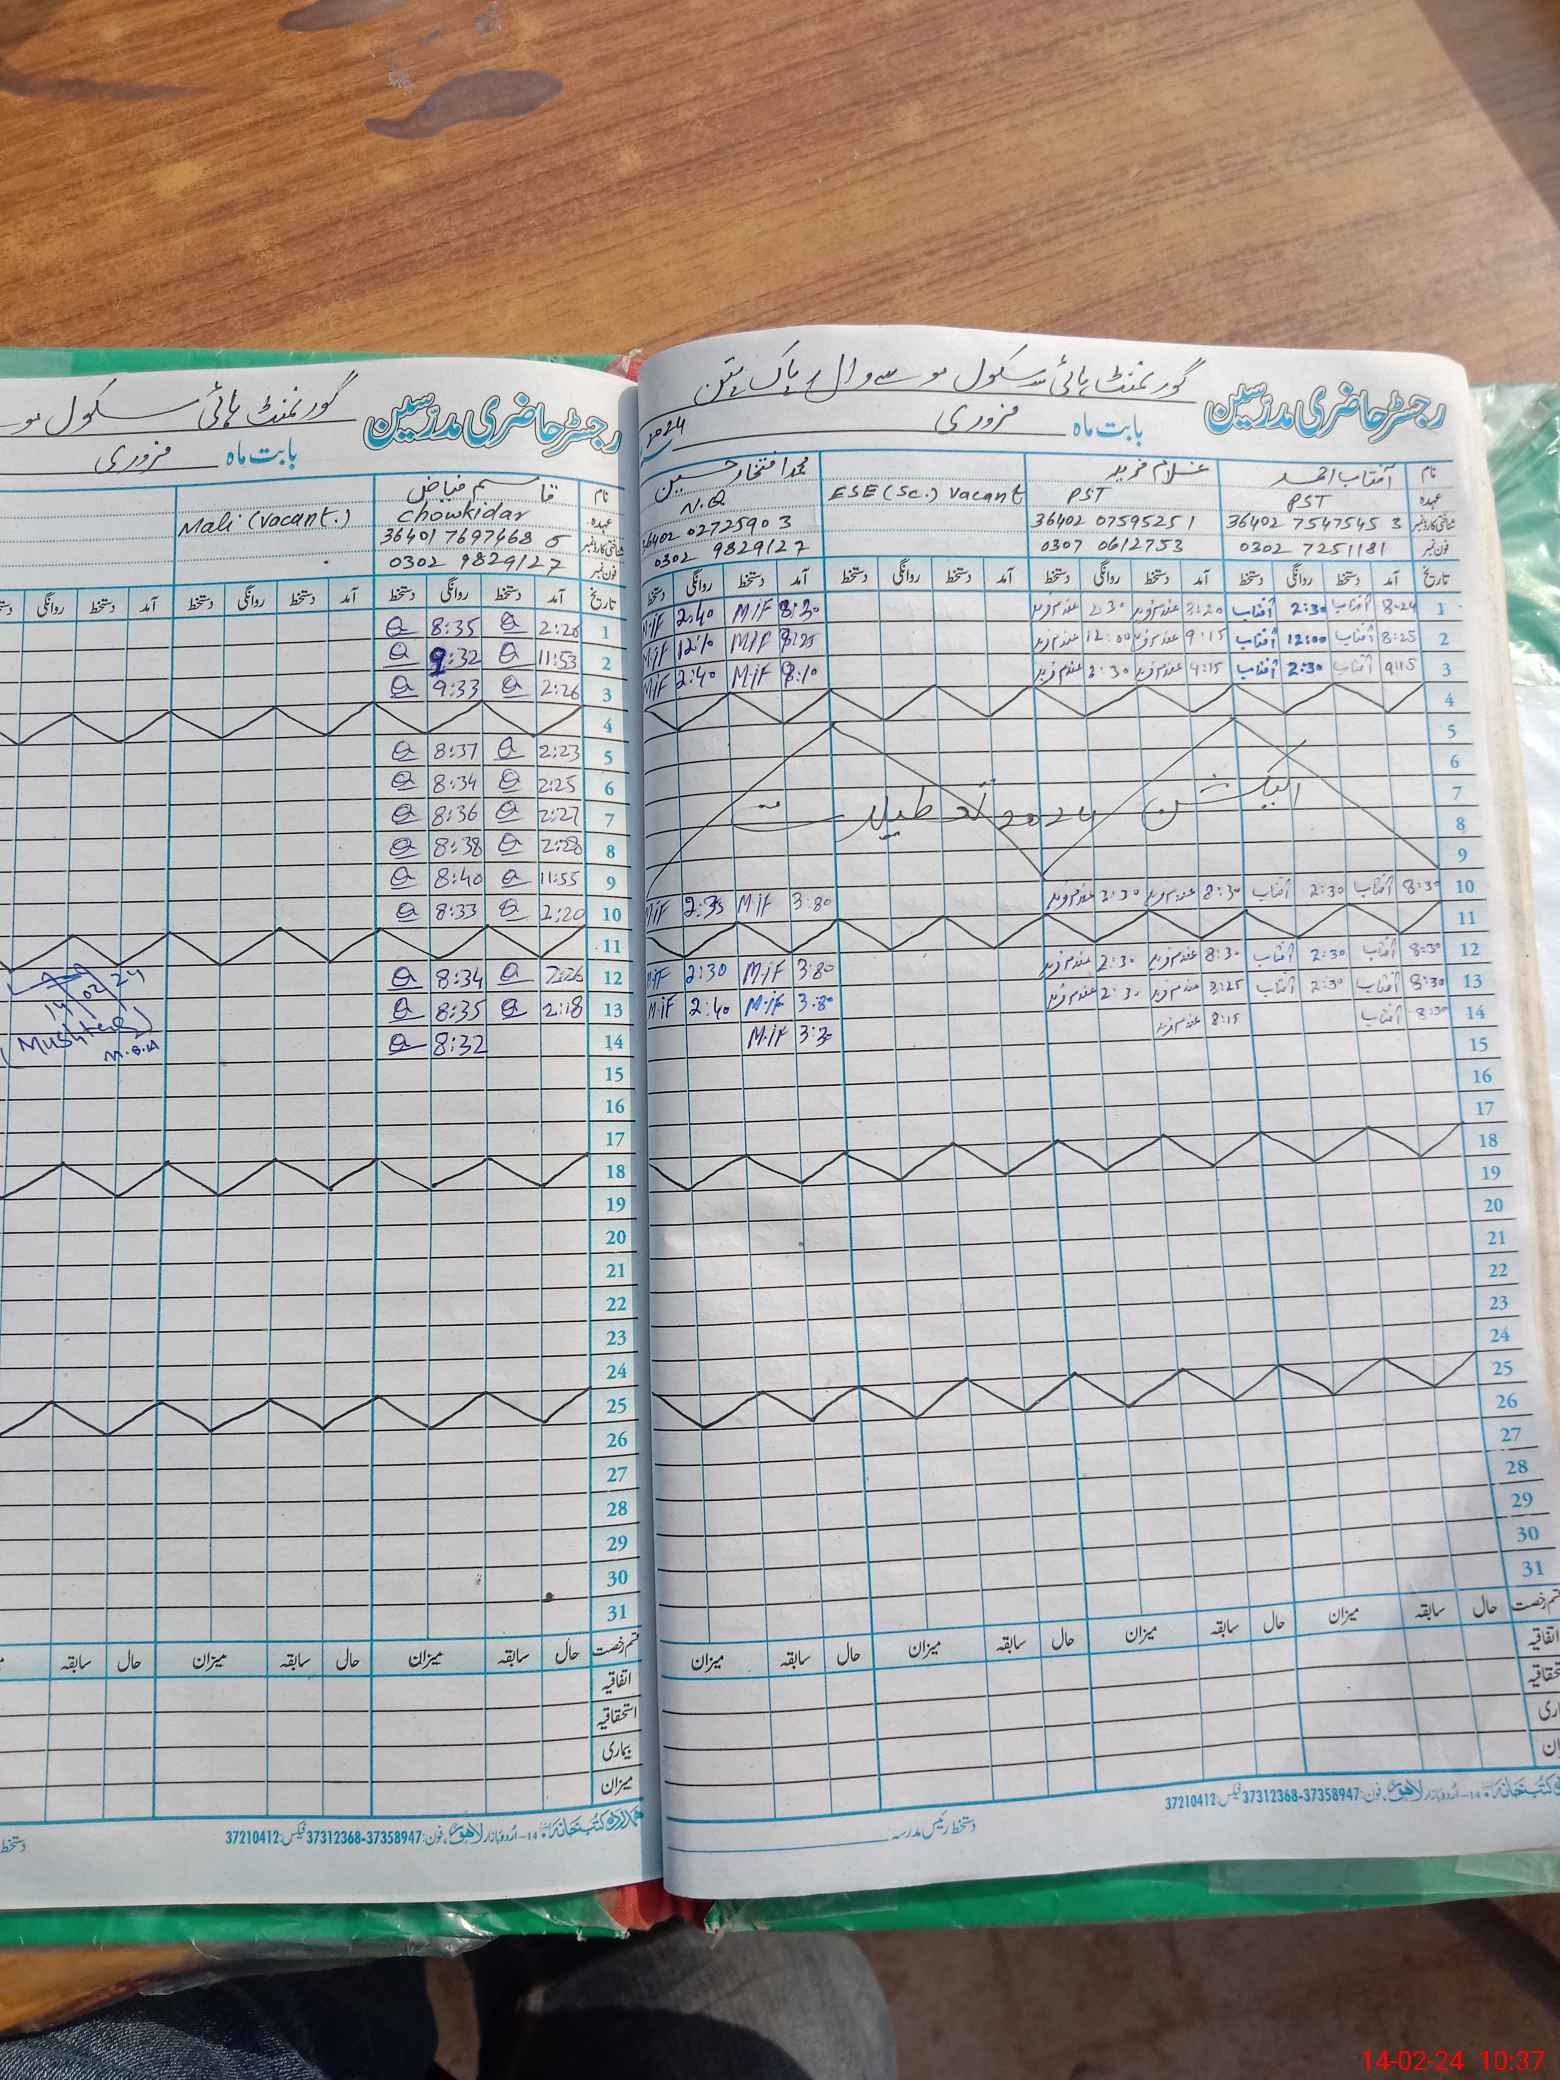 گورنمنٹ ہائی سکول موسے وال پاک پتن رجسٹر حاضری مدرسین
بابت ماہ فروری 2024
نام آفتاب احمد غلام فرید محمد افتخار حسین
عہدہ PST PST ESE (Sc.) Vacant N.Q
شناختی کارڈ نمبر 36402 7547545 3 36402 0759525 1 36402 0272590 3
فون نمبر 0302 7251181 0307 0612753 0302 9829127
تاریخ آمد دستخط روانگی دستخط آمد دستخط روانگی دستخط آمد دستخط روانگی دستخط آمد دستخط روانگی دستخط
1 8:24 آفتاب 2:30 آفتاب غلام فرید 2:30 غلام فرید 8:30 M.iF 2:40 M.iF
2 8:25 آفتاب 12:00 آفتاب 9:15 غلام فرید 12:00 غلام فرید 8:25 M.iF M.iF
3 9:15 آفتاب 2:30 آفتاب 9:15 غلام فرید 2:30 غلام فرید 8:10 M.iF 2:40 M.iF
4
5
6
7 الیکشن 2024 تعطیلات
8
9
10 8:30 آفتاب 2:30 آفتاب 8:30 غلام فرید 2:30 غلام فرید 3:80 M.iF 2:35 M.iF
11
12 8:30 آفتاب 2:30 آفتاب 8:30 غلام فرید 2:30 غلام فرید 3:80 M.iF 2:30 M.iF
13 8:30 آفتاب 2:30 آفتاب 8:25 غلام فرید 2:30 غلام فرید 3:80 M.iF 2:40 M.iF
14 8:30 آفتاب 8:15 غلام فرید M.iF
15
16
17
18
19
20
21
22
23
24
25
26
27
28
29
30
31
قسم رخصت حال سابقہ میزان حال سابقہ میزان حال سابقہ میزان حال سابقہ میزان
اتفاقیہ
کتب خانہ 14-اردو بازار لاہور، فون: 37358947-37312368 فیکس: 37210412
دستخط رئیس مدرسہ
گورنمنٹ ہائی سکول رجسٹر حاضری مدرسین
بابت ماہ فروری
نام قاسم فیاض
عہدہ Chowkidar Mali (Vacant.)
شناختی کارڈ نمبر 36401 7697468 5
فون نمبر 0302 9829127
تاریخ آمد دستخط روانگی دستخط آمد دستخط روانگی دستخط روانگی
1 2:26 Q 8:35 Q
2 11:53 Q 9:32 Q
3 2:26 Q 9:33 Q
4
5 2:23 Q 8:37 Q
6 2:25 Q 8:34 Q
7 2:27 Q 8:36 Q
8 2:28 Q 8:38 Q
9 11:55 Q 8:40 Q
10 2:20 Q 8:33 Q
11
12 2:26 Q 8:34 Q
13 2:18 Q 8:35 Q
14 8:32 Q
14/02/24
15
16
17
18
19
20
21
22
23
24
25
26
27
28
29
30
31
قسم رخصت حال سابقہ میزان حال سابقہ میزان حال سابقہ
اتفاقیہ
استحقاقیہ
بیماری
میزان
کتب خانہ 14-اردو بازار لاہور، فون: 37358947-37312368 فیکس: 37210412
14-02-24 10:37